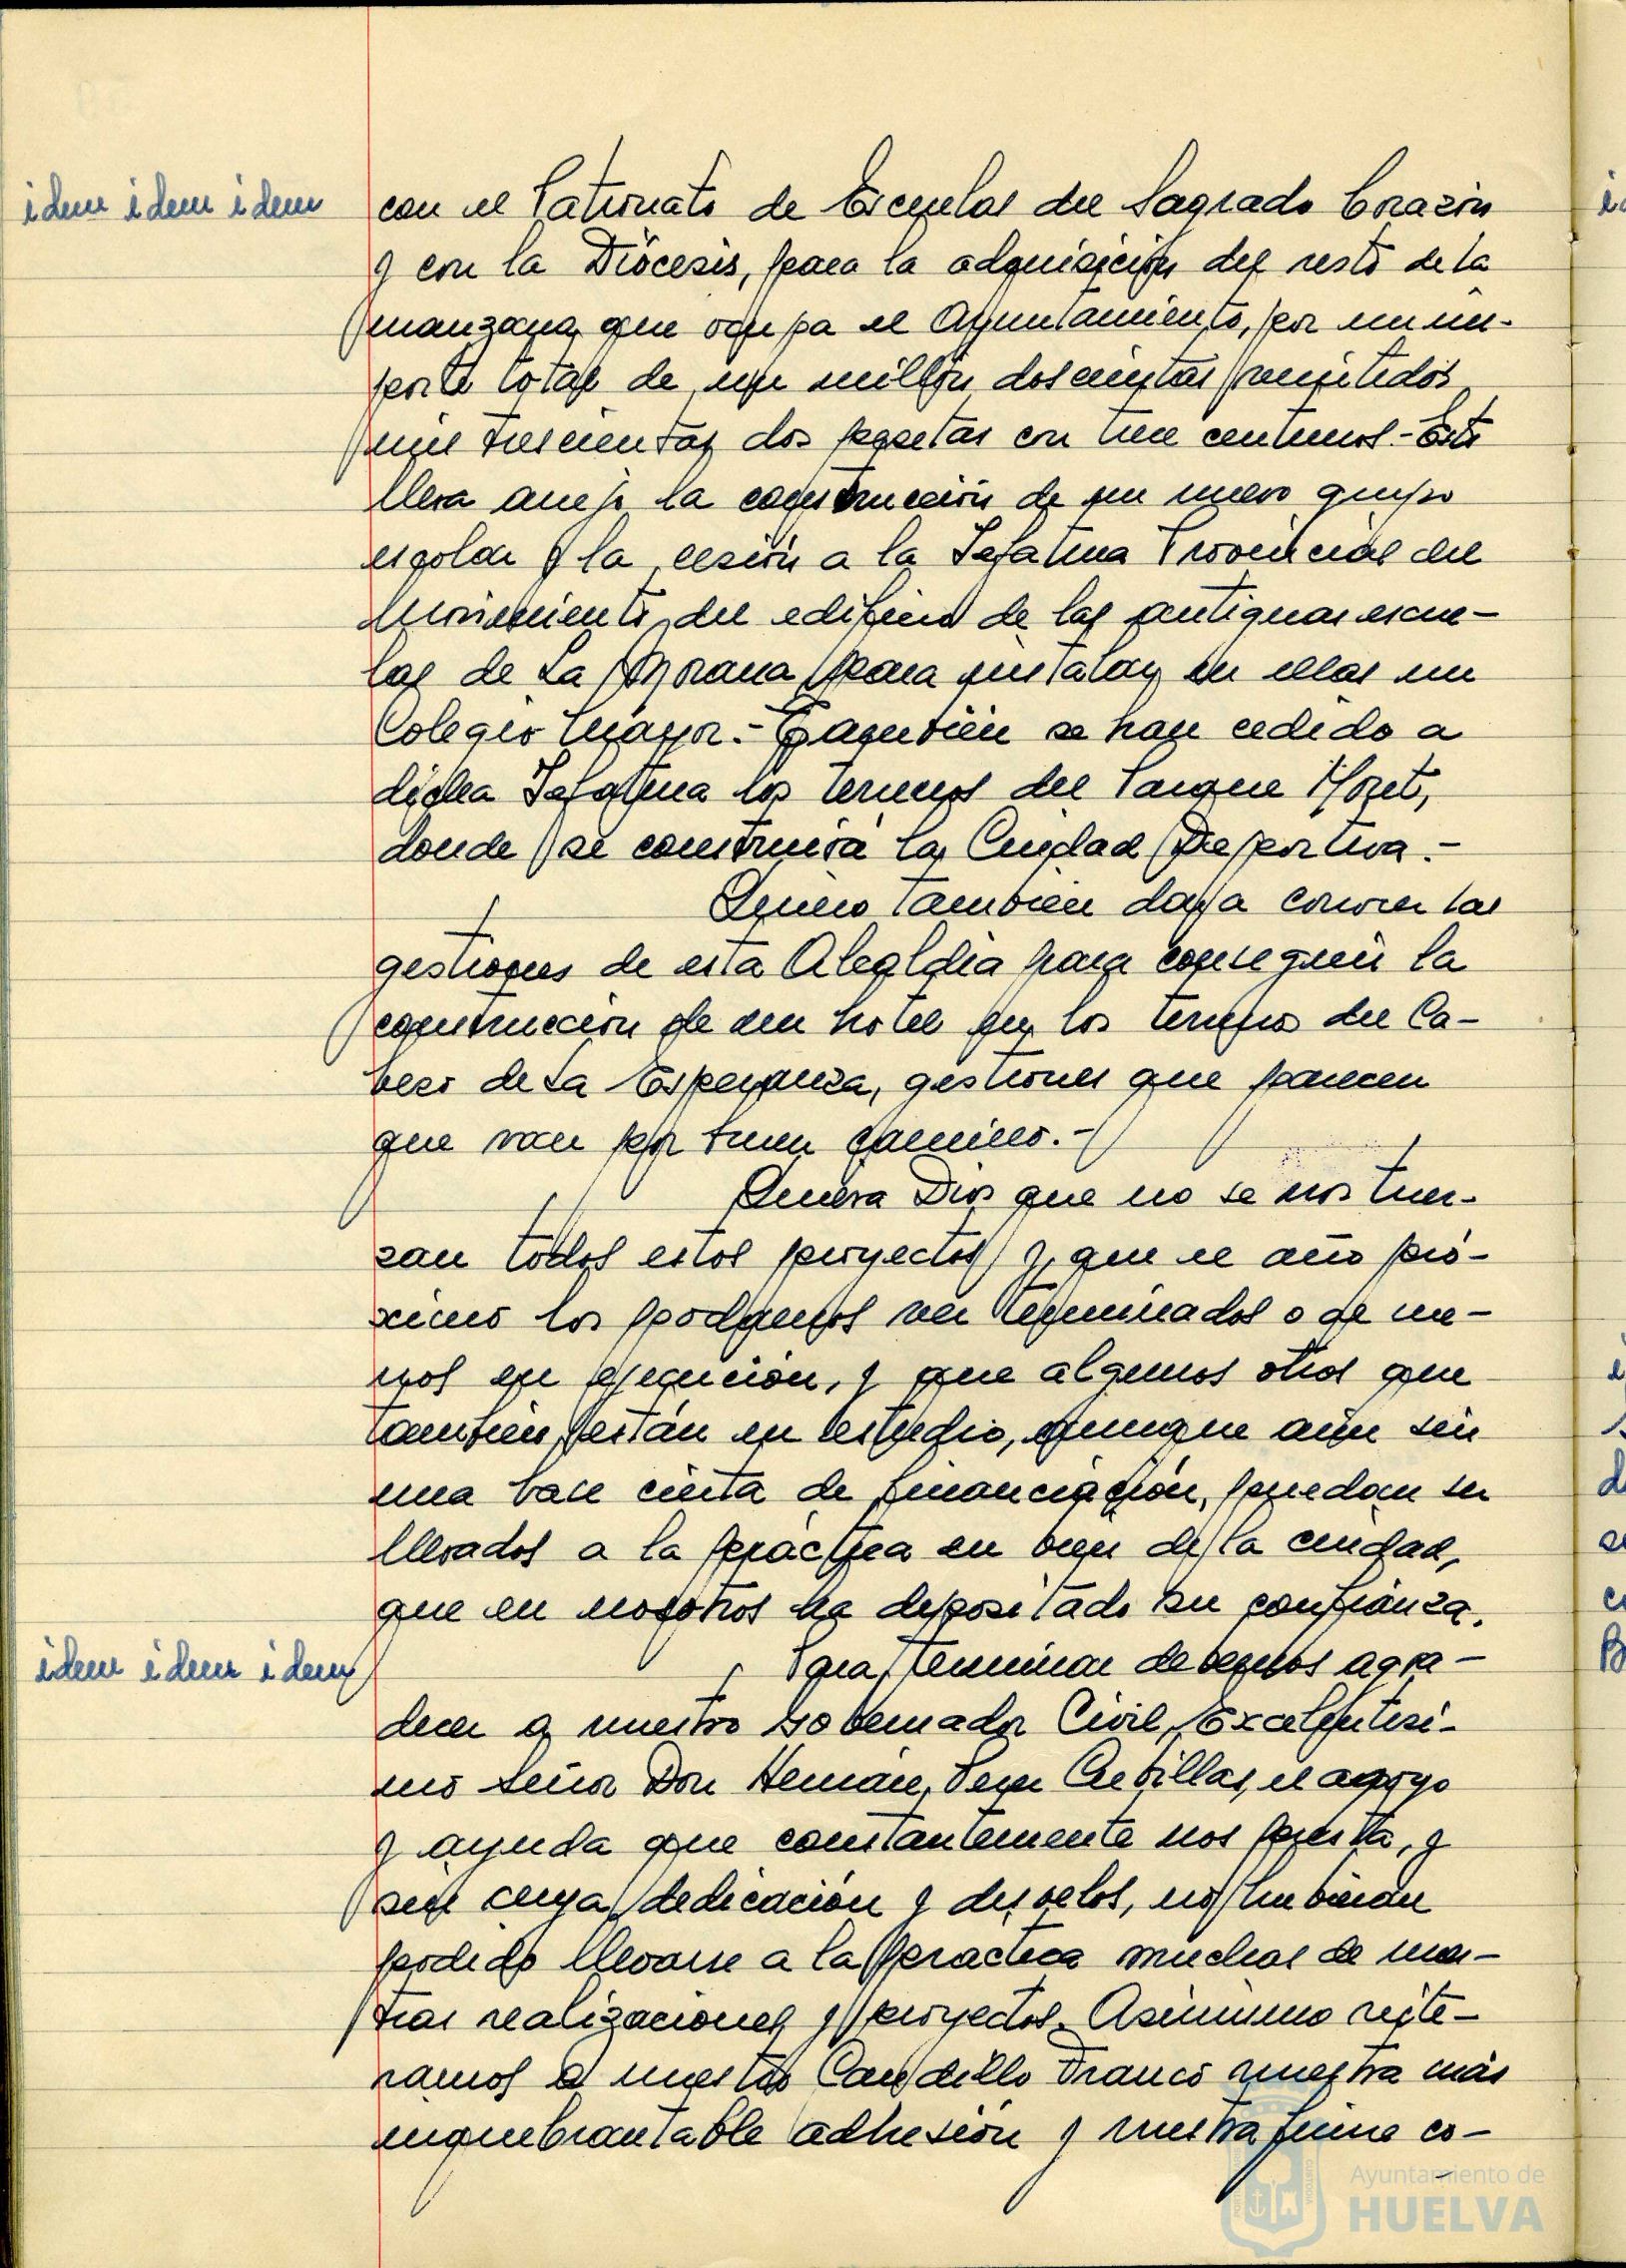 idem idem idem
con el Patronato de Escuelas del Sagrado Corazón
y con la Diócesis, para la adquisición del resto de la
manzana que ocupa el Ayuntamiento, por un im-
porte total de un millón doscientas veintidós
mil trescientas dos pesetas con trece centimos.- Esto
lleva anejo la construcción de un nuevo grupo
escolar y la cesión a la Jefatura Provincial del
Movimiento, del edificio de las antiguas escue-
las de La Morana para instalar en ellas un
Colegio Mayor.- También se han cedido a
dicha Jefatura los terrenos del Parque Moret,
donde se construirá la Ciudad Deportiva.-
Quiero también dar a conocer las
gestiones de esta Alcaldía para conseguir la
construcción de un hotel en los terrenos del Ca-
bezo de La Esperanza, gestiones que parecen
que van por buen camino.-
Quiera Dios que no se nos tuer-
zan todos estos proyectos y, que el año pró-
ximo los podamos ver terminados o al me-
nos en ejecución, y que algunos otros que
también están en estudio, aunque aún sin
una base cierta de financiación, puedan ser
llevados a la práctica en bien de la ciudad,
que en nosotros ha depositado su confianza.
idem idem idem
Para terminar debemos agra-
decer a nuestro Gobernador Civil, Excelentísi-
mo Señor Don Hernán Pérez Cubillas, el apoyo
y ayuda que constantemente nos presta, y
sin cuya dedicación y desvelos, no hubieran
podido llevarse a la practica muchas de nues-
tras realizaciones y proyectos. Asimismo reite-
ramos a nuestro Caudillo Franco nuestra más
inquebrantable adhesión y nuestra firme co-
Ayuntamiento de
HUELVA